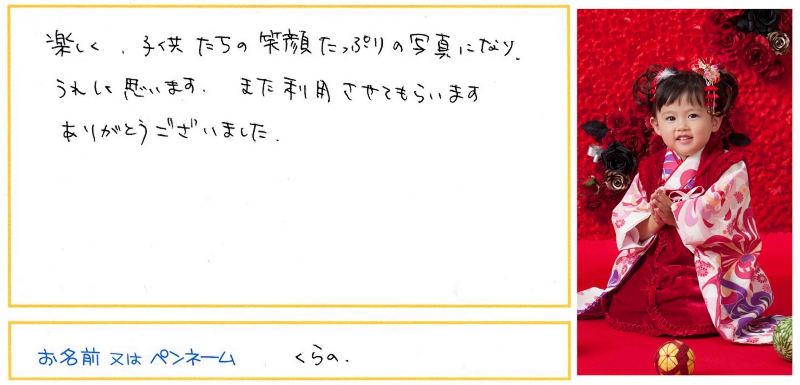 楽しく、子供たちの笑顔たっぷりの写真になり、
うれしく思います。また利用させてもらいます
ありがとうございました.
お名前又はペンネーム くらの.